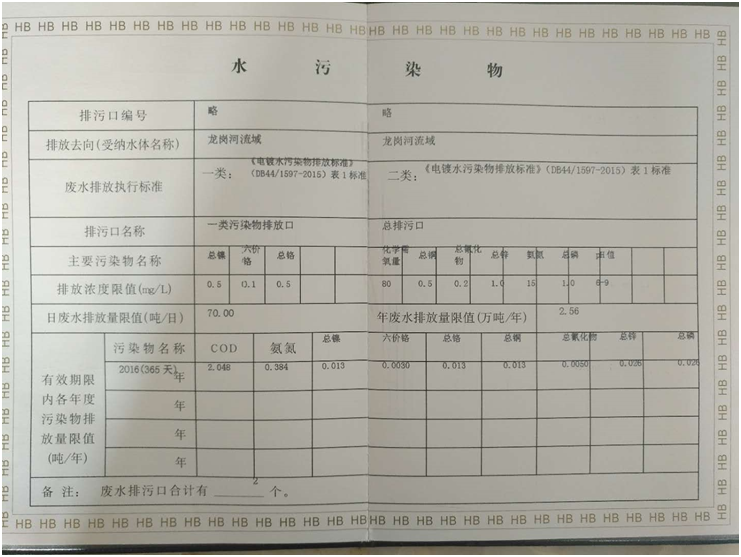 HB HB HB HB HB HB HB HB HB HB HB HB HB HB HB HB HB HB HB HB HB HB HB HB HB HB
水 污 染 物
排污口编号 略 略
排放去向(受纳水体名称) 龙岗河流域 龙岗河流域
废水排放执行标准 一类: 《电镀水污染物排放标准》 (DB44/1597-2015) 表1标准 二类: 《电镀水污染物排放标准》(DB44/1597-2015) 表1标准
排污口名称 一类污染物排放口 总排污口
主要污染物名称 总镍 六价铬 总铬 化学需氧量 总铜 总氰化物 总锌 氨氮 总磷
排放浓度限值(mg/L) 0.5 0.1 0.5 80 0.5 0.2 1.0 15 1.0 6-9
日废水排放量限值(吨/日) 70.00 年废水排放量限值(万吨/年) 2.56
有效期限内各年度污染物排放量限值(吨/年)
污染物名称 COD 氨氮 总镍 六价铬 总铬 总铜 总氰化物 总锌 总磷
2016(365天)年 2.048 0.384 0.013 0.0030 0.013 0.013 0.0050 0.026 0.026
年
年
年
备 注: 废水排污口合计有 2 个。
HB HB HB HB HB HB HB HB HB HB HB HB HB HB HB HB HB HB HB HB HB HB HB HB HB